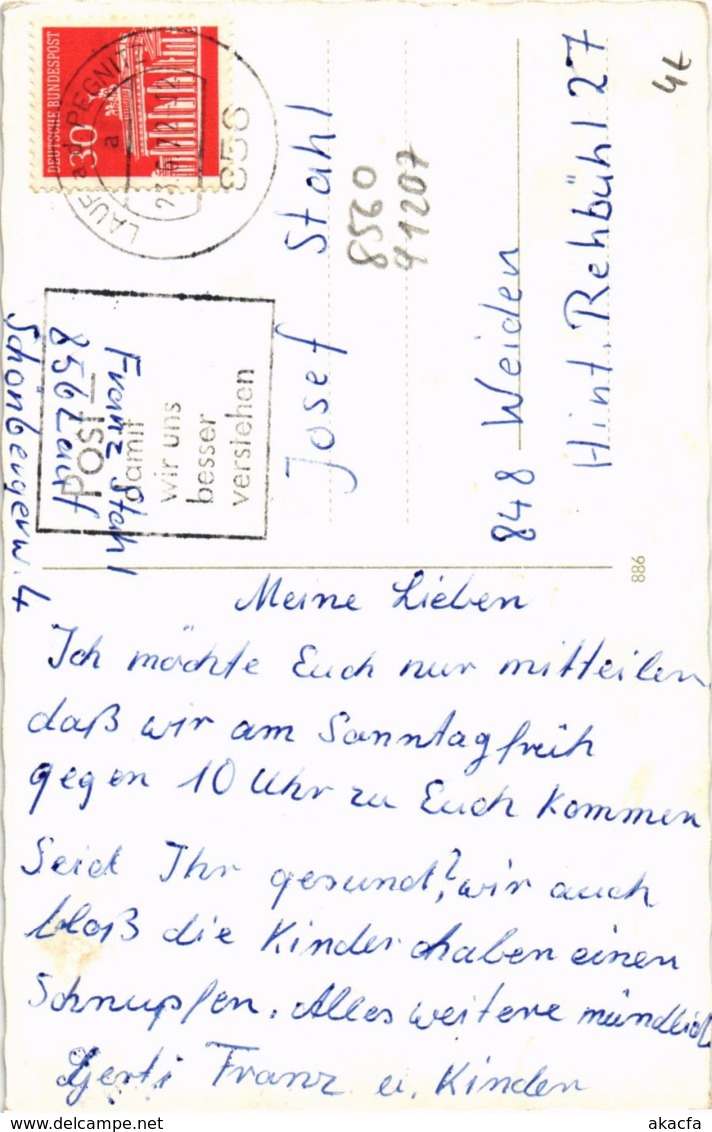 DEUTSCHE BUNDESPOST
30
LAUF a.d. PEGNITZ
a
23.6.72-12
856
Post –
damit
wir uns
besser
verstehen
Franz Stahl
856 Lauf
Schönbergerw. 4
Josef Stahl
8560
41207
848 Weiden
Hint. Rehbühl 27
4t
886
Meine Lieben
Ich möchte Euch nur mitteilen
daß wir am Sonntagfrüh
gegen 10 Uhr zu Euch kommen
Seid Ihr gesund?, wir auch
bloß die Kinder haben einen
Schnupfen. Alles weitere mündlich
Gerti Franz u. Kinder
akacfa
www.delcampe.net akacfa